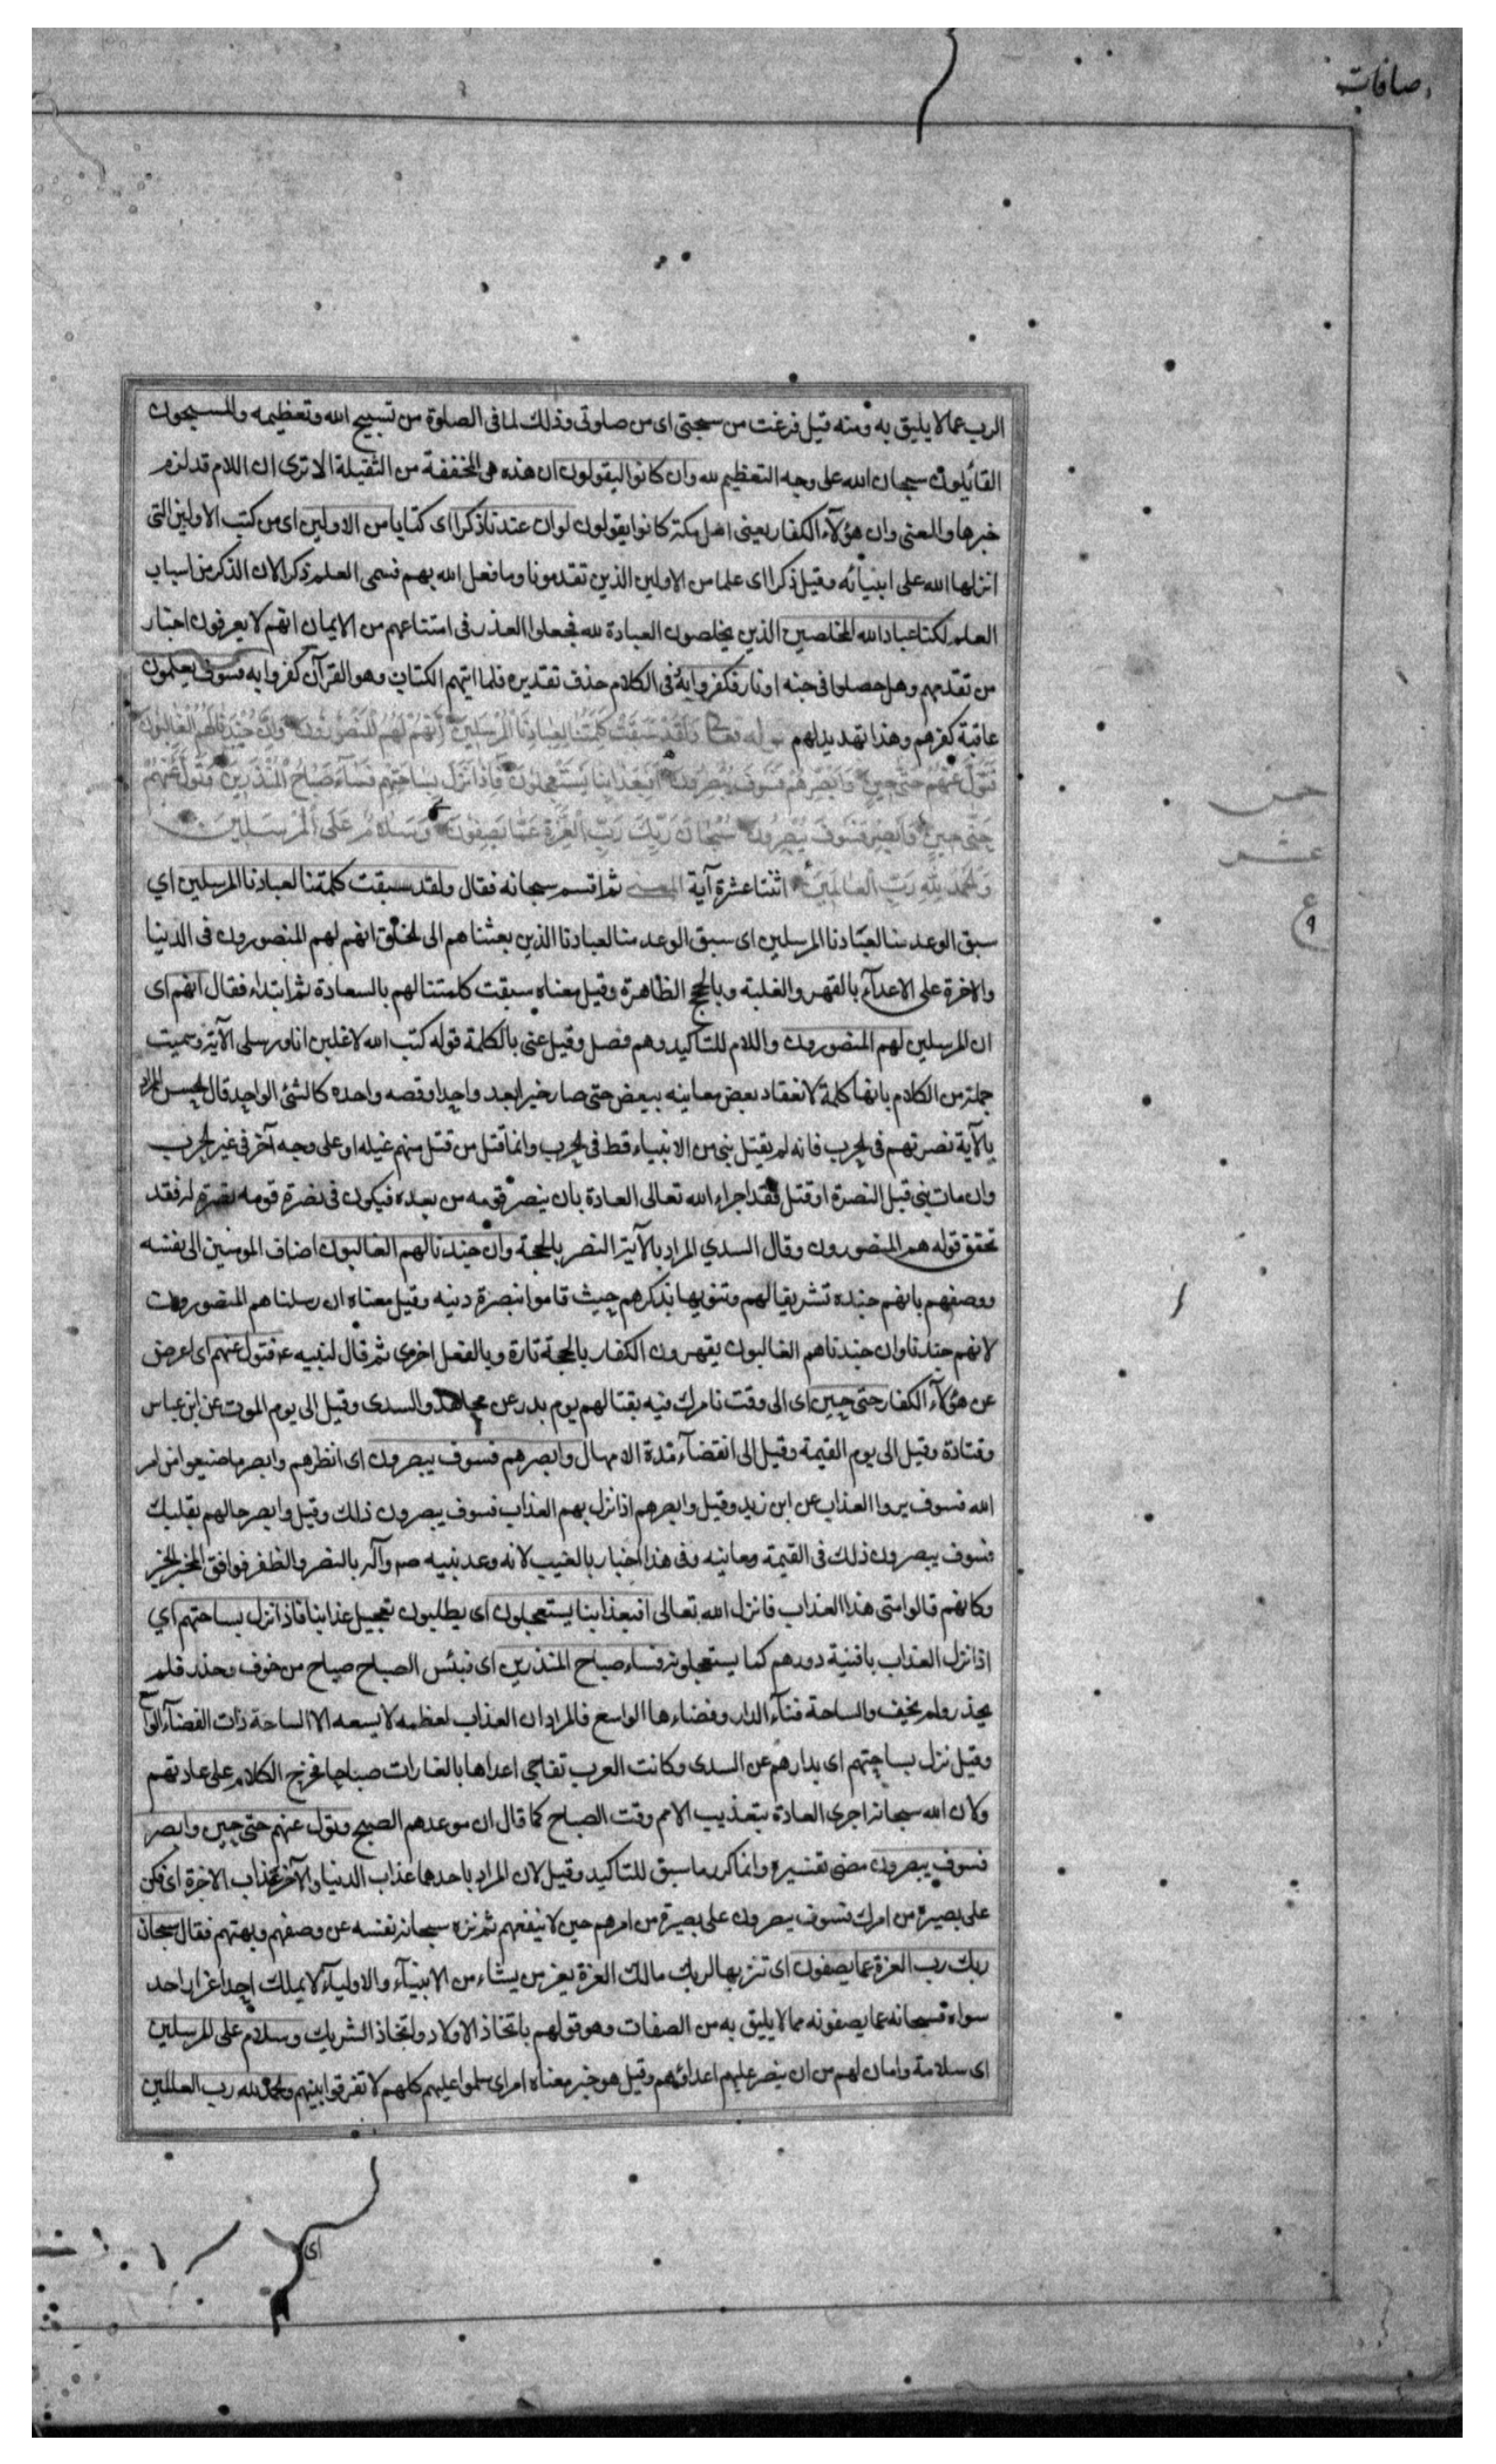 صافات
الرب عما لا يليق به ومنه قيل فرغت من سبحتى اى من صلوتى وذلك لما فى الصلوة من تسبيح الله وتعظيمه والمسبحون
القائلون سبحان الله على وجه التعظيم لله وان كانوا ليقولون ان هذه هى المخففة من الثقيلة الا ترى ان اللام قد لزم
خبرها والمعنى وان هؤلآء الكفار يعنى اهل مكة كانوا يقولون لو ان عندنا ذكرا اى كتابا من الاولين اى من كتب الاولين التى
انزلها الله على انبيائه وقيل ذكرا اى علما من الاولين الذين تقدمونا وما فعل الله بهم فسمى العلم ذكرا لان الذكر من اسباب
العلم لكنا عباد الله المخلصين الذين يخلصون العبادة لله فجعلوا العذر فى امتناعهم من الايمان انهم لا يعرفون اخبار
من تقدمهم وهل حصلوا فى جنه او نار فكفروا به فى الكلام حذف تقديره فلما اتيهم الكتاب وهو القرآن كفروا به فسوف يعلمون
عاقبة كفرهم وهذا تهديد لهم قوله تعالى وَلَقَدْ سَبَقَتْ كَلِمَتُنَا لِعِبَادِنَا الْمُرْسَلِينَ اِنَّهُمْ لَهُمُ الْمَنْصُورُونَ وَاِنَّ جُنْدَنَا لَهُمُ الْغَالِبُونَ
فَتَوَلَّ عَنْهُمْ حَتّى حِينٍ وَاَبْصِرْهُمْ فَسَوْفَ يُبْصِرُونَ اَفَبِعَذَابِنَا يَسْتَعْجِلُونَ فَاِذَا نَزَلَ بِسَاحَتِهِمْ فَسَآءَ صَبَاحُ الْمُنْذَرِينَ وَتَوَلَّ عَنْهُمْ
حَتّى حِينٍ وَاَبْصِرْ فَسَوْفَ يُبْصِرُونَ سُبْحَانَ رَبِّكَ رَبِّ الْعِزَّةِ عَمَّا يَصِفُونَ وَسَلَامٌ عَلَى الْمُرْسَلِينَ
وَالْحَمْدُ لِلّهِ رَبِّ الْعَالَمِينَ اثنتا عشرة آية المعنى ثم اقسم سبحانه فقال ولقد سبقت كلمتنا لعبادنا المرسلين اي
سبق الوعد منا لعبادنا المرسلين اى سبق الوعد منا لعبادنا الذين بعثناهم الى الخلق انهم لهم المنصورون فى الدينا
والاخرة على الاعدآء بالقهر والغلبة وبالحجج الظاهرة وقيل معناه سبقت كلمتنا لهم بالسعادة ثم ابتداء فقال انهم اى
ان المرسلين لهم المنصورون واللام للتاكيد وهم فصل وقيل عنى بالكلمة قوله كتب الله لاغلبن انا ورسلى الآية وسميت
جملة من الكلام بانها كلمة لانعقاد بعض معانيه ببعض حتى صار خبرا واحدا وقصه واحده كالشئ الواحد قال الحسن المراد
بالآية نصرتهم فى الحرب فانه لم يقتل نبى من الانبياء قط فى الحرب وانما قتل من قتل منهم غيله او على وجه آخر فى غير الحرب
وان مات نبى قبل النصرة او قتل فقد اجراء الله تعالى العادة بان ينصر قومه من بعده فيكون فى نصرة قومه نصرة له فقد
تحقق قوله هم المنصورون وقال السدي المراد بالآية النصر بالحجة وان جندنا لهم الغالبون اضاف المومنين الى نفسه
ووصفهم بانهم جنده تشريفا لهم وتنويها بذكرهم حيث قاموا بنصرة دينه وقيل معناه ان رسلنا هم المنصورون
لانهم جندنا وان جندنا هم الغالبون يقهرون الكفار بالحجة تارة وبالفعل اخرى ثم قال لنبيه ع فتول عنهم اى اعرض
عن هؤلآء الكفار حتى حين اى الى وقت نامرك فيه بقتالهم يوم بدر عن مجاهد والسدى وقيل الى يوم الموت عن ابن عباس
وقتادة وقيل الى يوم القيمة وقيل الى انقضآء مدة الامهال وابصرهم فسوف يبصرون اى انظرهم وابصر ما ضيعوا من امر
الله فسوف يروا العذاب عن ابن زيد وقيل وابصرهم اذا نزل بهم العذاب فسوف يبصرون ذلك وقيل وابصر حالهم بقلبك
فسوف يبصرون ذلك فى القيمة معاينه وفى هذا اخبار بالغيب لانه وعد نبيه صم وآله بالنصر والظفر فوافق المخبر الخبر
وكانهم قالوا متى هذا العذاب فانزل الله تعالى افبعذابنا يستعجلون اى يطلبون تعجيل عذابنا فاذا نزل بساحتهم اي
اذا نزل العذاب بافنية دورهم كما يستعجلونه فساء صباح المنذرين اى فبئس الصباح صباح من خوف وحذر فلم
يحذر ولم يخيف والساحة فنآء الدار وفضاءها الواسع فالمراد ان العذاب لعظمه لا يسعه الا الساحة ذات الفضآء الواسع
وقيل نزل بساحتهم اى بدارهم عن السدى وكانت العرب تفاجى اعداها بالغارات صباحا فخرج الكلام على عادتهم
ولان الله سبحانه اجرى العادة بتعذيب الامم وقت الصباح كما قال ان موعدهم الصبح وتول عنهم حتى حين وابصر
فسوف يبصرون مضى تفسيره وانما كرر ما سبق للتاكيد وقيل لان المراد باحدهما عذاب الدنيا والآخر عذاب الاخرة اى فكن
على بصيرة من امرك فسوف يبصرون على بصيرة من امرهم حين لا ينفعهم ثم نزه سبحانه نفسه عن وصفهم وبهتهم فقال سبحان
ربك رب العزة عما يصفون اى تنزيها لربك مالك العزة يعز من يشاء من الانبيآء والاوليآء لا يملك احد اعزاز احد
سواه فسبحانه عما يصفونه مما لا يليق به من الصفات وهو قولهم باتخاذ الاولاد واتخاذ الشريك وسلام على المرسلين
اى سلامة وامان لهم من ان ينصر عليهم اعداؤهم وقيل هو خبر معناه امر اى سلموا عليهم كلهم لا تفرقوا بينهم والحمد لله رب العالمين
خمس
عشر
ع
٩
اى